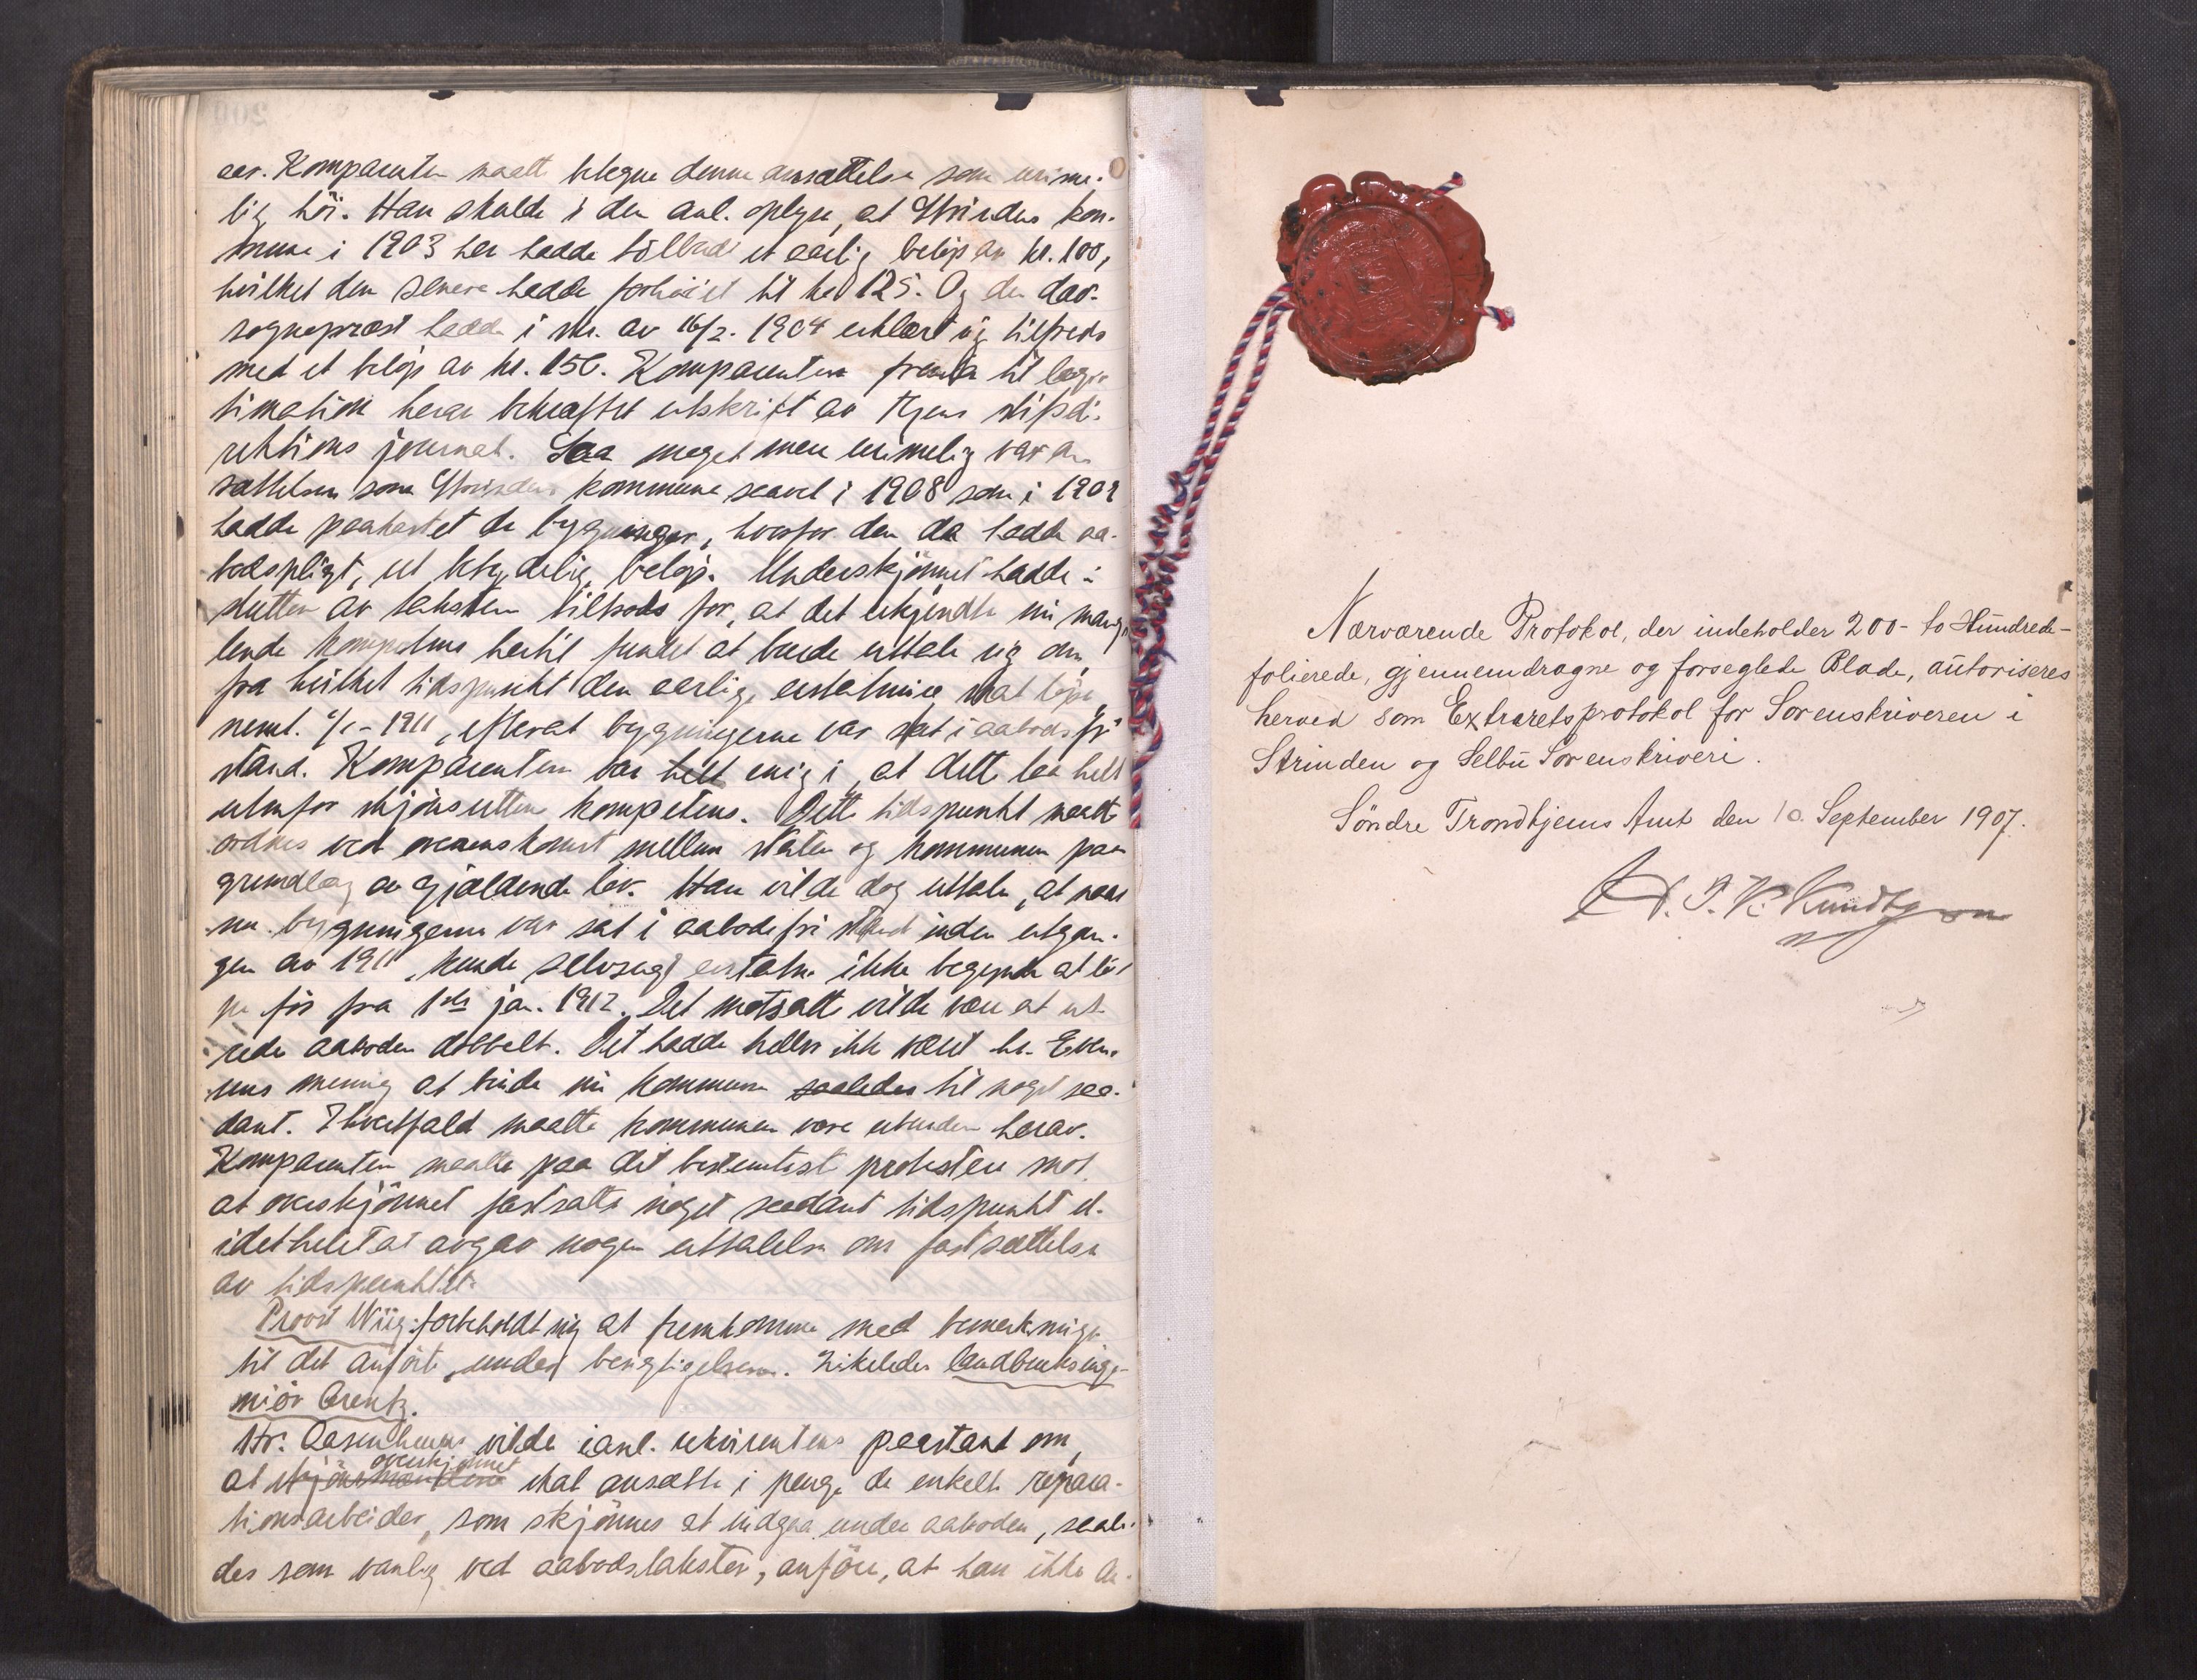 aar. Komparenten maatte betegne denne ansættelse som urime-
lig höi. Han skulde i den anl. oplyse, at Strindens kom-
mune i 1903 her hadde tilbudt et aarlig belöp av kr. 100,
hvilket den senere hadde forhöiet til kr 125. Og den dav.
sogneprest hadde i skr. av 16/2. 1904 erklært sig tilfreds
med et belöp av kr. 150. Komparenten fremla til legi-
timation herav bekræftet utskrift av Tr.hjems stiftsdi-
rektions journal. Saa meget mere urimelig var an-
sættelsen som Strindens kommune saavel i 1908 som i 1909
hadde paakostet de bygninger, hvorfor den da hadde aa-
bodspligt, et betydelig belöp. Underskjönnet hadde i
slutten av taksten tiltrods for, at det erkjendte sin mang-
lende kompetens hertil fundet at burde uttale sig om,
fra hvilket tidspunkt den aarlige erstatning skal löpe,
neml. 1/1 - 1911, efterat bygningerne var sat i aabodsfri
stand. Komparenten var helt enig i, at dette laa helt
utenfor skjönsrettens kompetens. Dette tidspunkt maatte
ordnes ved overenskomst mellem staten og kommunen paa
grundlag av gjældende lov. Han vilde dog uttale, at naar
nu bygningerne var sat i aabodsfri stand inden utgan-
gen av 1911, kunde selvsagt erstatn. ikke begynde at lö-
pe för fra 1ste jan. 1912. Det motsatte vilde være at ut-
rede aaboden dobbelt. Det hadde heller ikke været hr. Even-
sens mening at binde sin kommune saaledes til noget saa-
dant. I hvertfald maatte kommunen være ubunden herav.
Komparenten maatte paa det bestemteste protestere mot,
at overskjönnet fastsatte noget saadant tidspunkt el.
idethele tat avgav nogen uttalelse om fastsættelse
av tidspunktet.
Provst Wiig: forbeholdt sig at fremkomme med bemerkninger
til det anförte under besigtigelsen. Likeledes landbruksinge-
niör Arentz.
Hr. Aasenhuus vilde i anl. rekvirentens paastand om,
overskjönnet
at skjönsmændene skal ansætte i penge de enkelte repara-
tionsarbeider, som skjönnes at indgaa under aaboden, saale-
des som vanlig ved aabodstakster, anföre, at han ikke an-
Nærværende Protokol, der indeholder 200 - to Hundrede -
folierede, gjennemdragne og forseglede Blade, autoriseres
herved som Extraretsprotokol for Sorenskriveren i
Strinden og Selbu Sorenskriveri.
Söndre Trondhjems Amt den 10. September 1907.